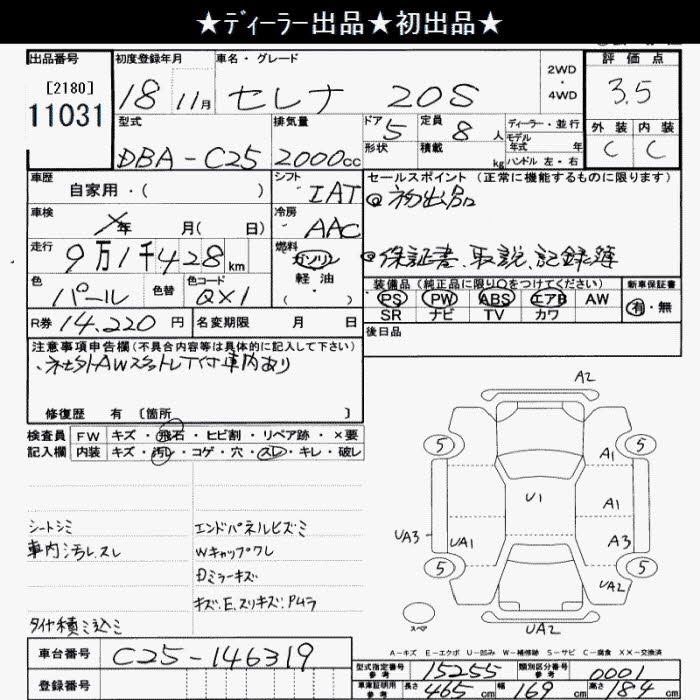 ★ディーラー出品★初出品★
出品番号
[2180]
11031
初度登録年月
18 11月
車名・グレード
セレナ 20S
2WD
・
4WD
評価点
3.5
外装 内装
C C
型式
DBA-C25
排気量
2000cc
ドア
5
形状
定員
8人
積載
kg
ディーラー・並行
モデル
年式 年
ハンドル 左・右
車歴
自家用・( )
シフト
IAT
セールスポイント (正常に機能するものに限ります)
初出品
車検
年 月( 日)
冷房
AAC
走行
9万1千428km
燃料
ガソリン
軽油
( )
保証書、取説、記録簿
色
パール
色替
色コード
QX1
装備品(純正品に限り○をつけてください)
PS PW ABS エアB AW
SR ナビ TV カワ
新車保証書
有・無
R券 14,220円
名変期限 月 日
後日品
注意事項申告欄(不具合内容等は具体的に記入して下さい)
修復歴 有 〔箇所 〕
検査員
記入欄
FW キズ・飛石・ヒビ割・リペア跡・×要
内装 キズ・汚レ・コゲ・穴・スレ・キレ・破レ
シートシミ
車内汚レ、スレ
タイヤ積ミ込ミ
エンドパネルヒズミ
Wキャップワレ
Dミラーキズ
キズ.E.スリキズ.Pムラ
A2
5 5
A1
U1
A1
UA3 UA1 A3
5 5
UA2
スペア
UA2
A-キズ E-エクボ U-凹み W-補修跡 S-サビ C-腐食 XX-交換済
車台番号 C25-146319
登録番号
型式指定番号
参考
15255
類別区分番号
参考
0001
車庫証明用
参考
長さ 465cm 幅 169cm 高さ 184cm